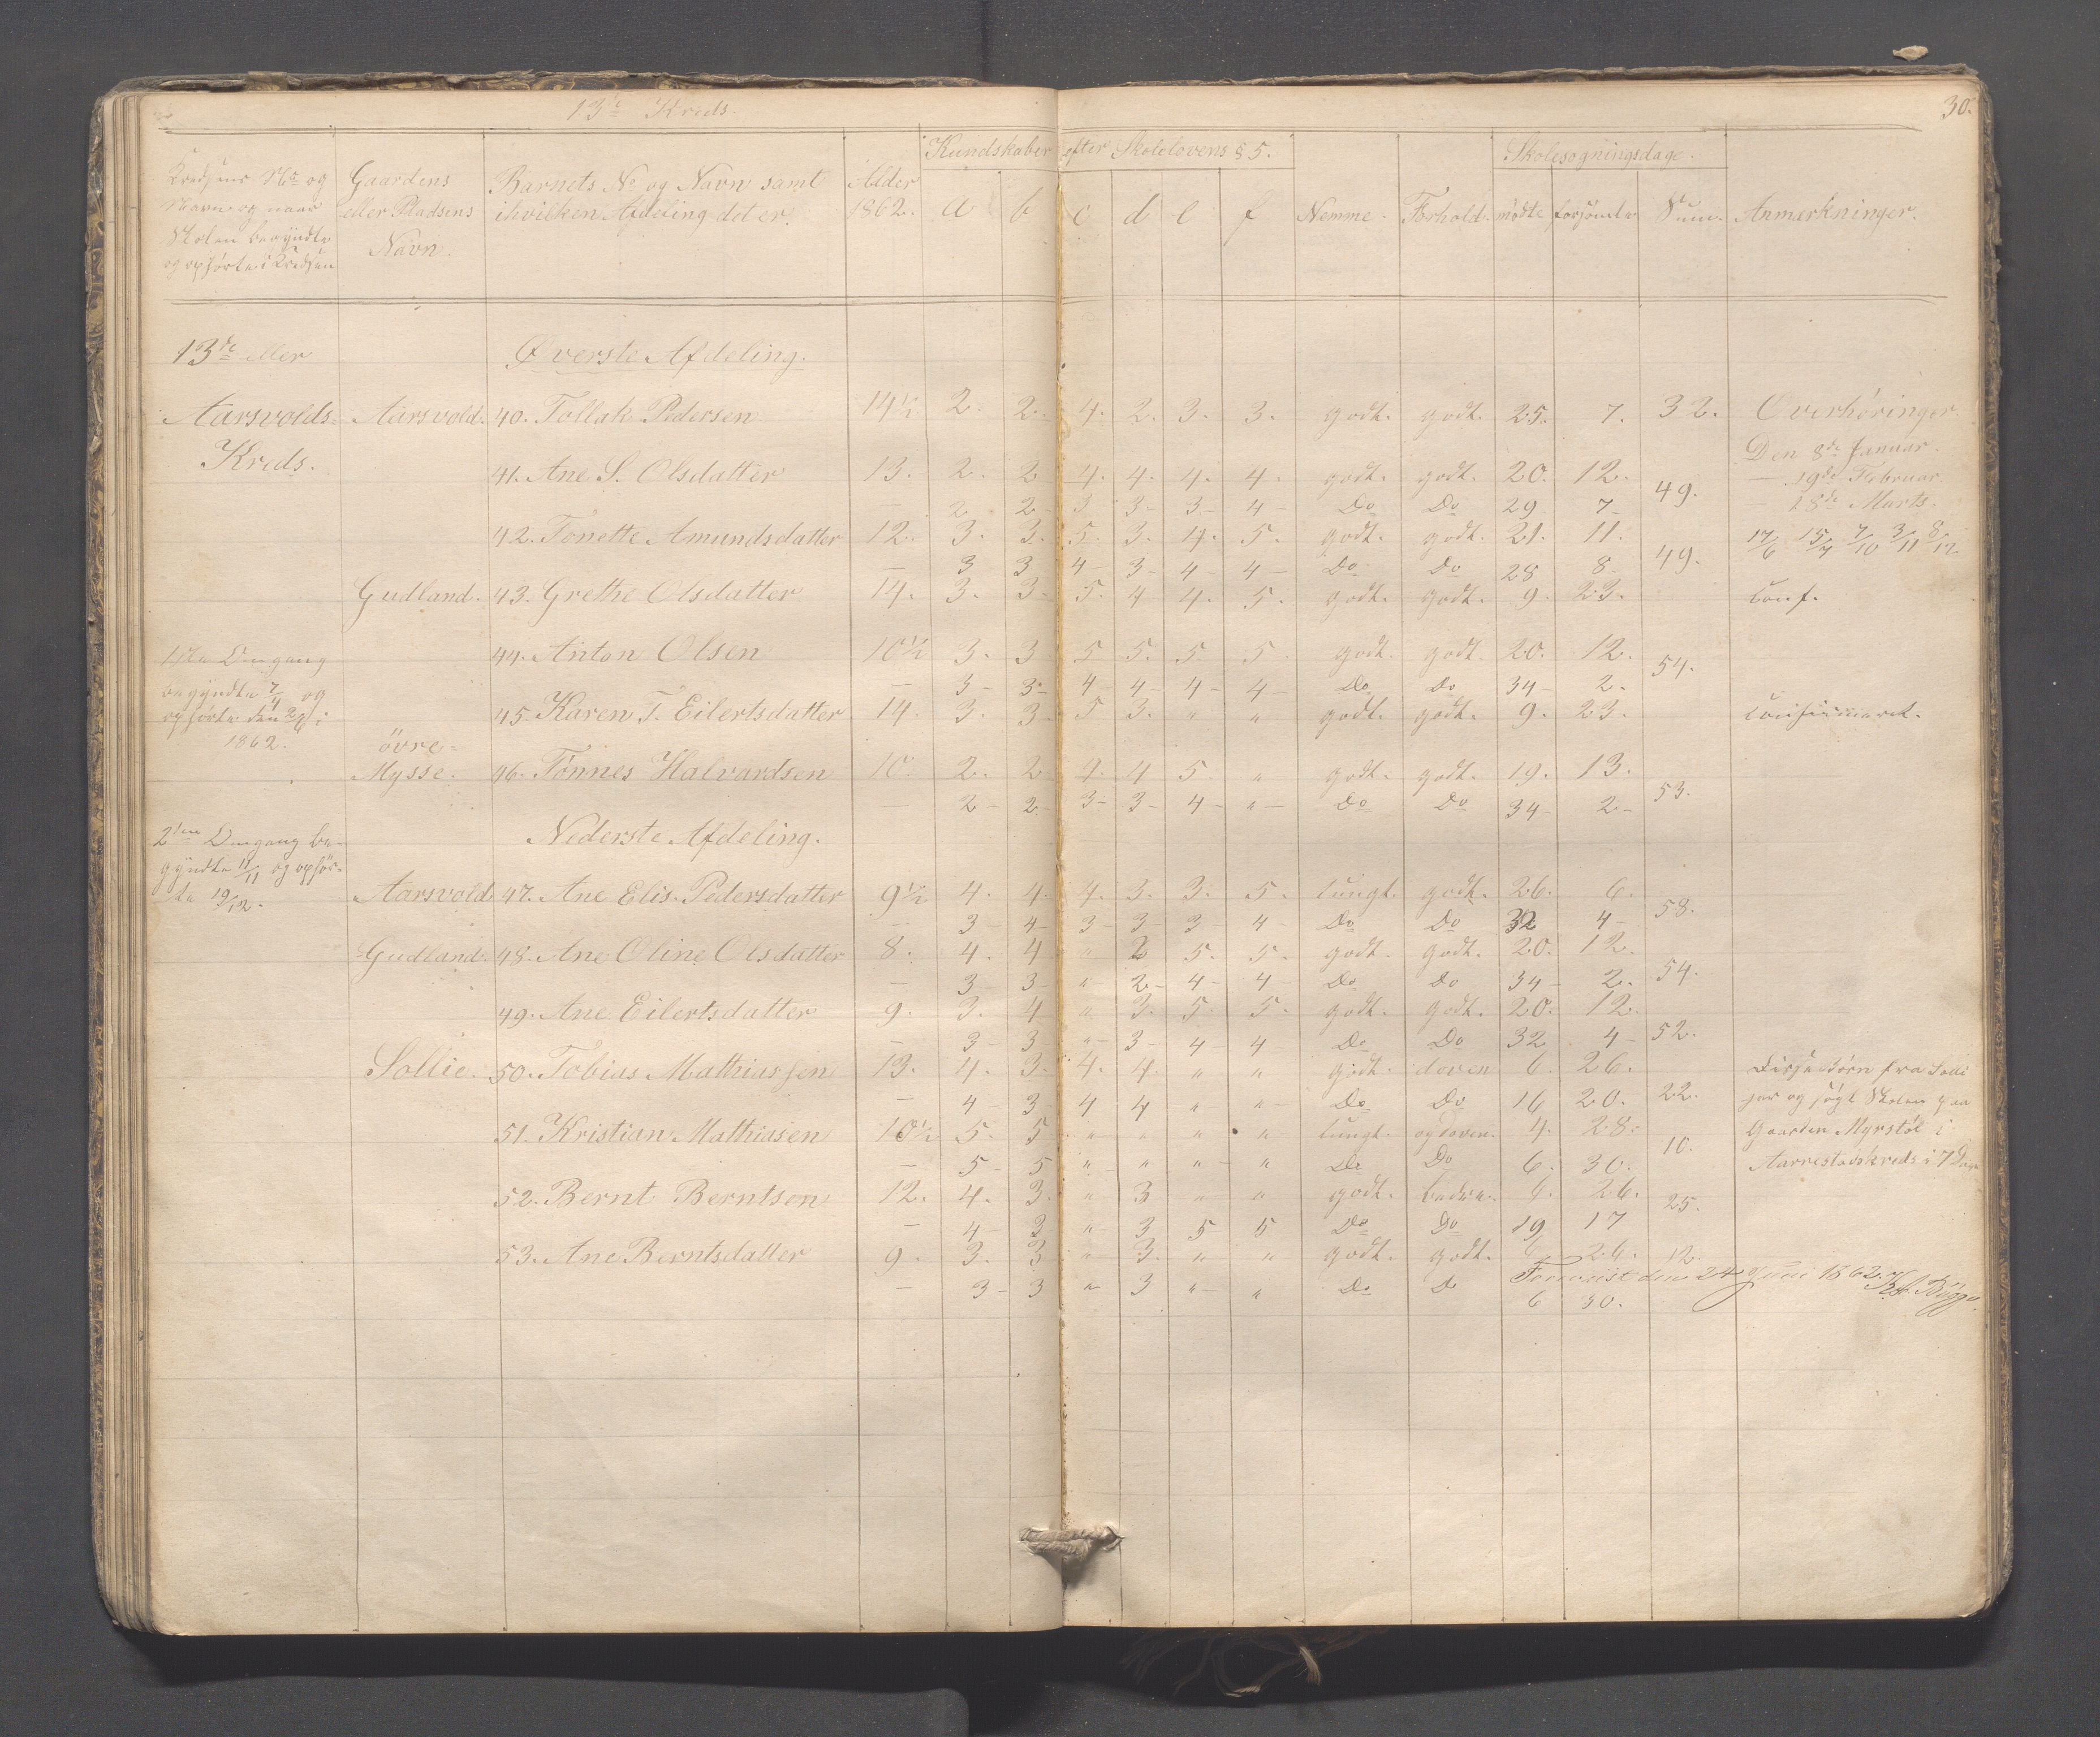 13de Kreds.
30.
Kredsens No og Navn og naar Skolen begyndte og ophørte i Kredsen
Gaardens eller Pladsens Navn.
Barnets No og Navn samt ihvilken Afdeling det er.
Alder 1862.
Kundskaber efter Skolelovens § 5.
a b c d e f
Nemme. Forhold.
Skolesøgningsdage.
mødte forsømte Sum. Anmærkninger.
13de eller Øverste Afdeling.
Aarsvolds- Aarsvold. 40. Tollak Pedersen 14½ 2. 2. 4. 2. 3. 3. godt. godt. 25. 7. 32. Overhøringer.
Kreds. Den 8de Januar.
41. Ane S. Olsdatter 13. 2. 2 4. 4. 4. 4. godt. godt. 20. 12. — 19de Februar
— 2 2 3 3 3 4 Do Do 29 7 49. — 18de Marts.
42. Tonette Amundsdatter 12. 3. 3. 5. 3. 4. 5. godt. godt. 21. 11. 17/6 15/7 7/10 3/11 8/12
— 3 3 4 3 4 4 Do Do 28 8 49.
Gudland. 43. Grethe Olsdatter 14. 3. 3 5. 4 4. 5. godt. godt. 9. 23. Conf.
44. Anton Olsen 10½ 3. 3 5 5. 5 5 godt. godt. 20. 12.
— 3 3 4 4 4 4 Do Do 34 2. 54.
1ste Omgang
begyndte 7/4 og
ophørte den
1862.
45. Karen T. Eilertsdatter 14. 3. 3. 5 3. " " godt. godt. 9. 23. Confirmeret.
øvre-
Mysse. 46. Tønnes Halvardsen 10. 2. 2 4. 4 5. " godt. godt. 19. 13.
— 2 2 3 3 4 " Do Do 34 2 53.
2den Omgang be-
gyndte 11/11 og ophør-
te 19/12.
Nederste Afdeling.
Aarsvold. 47. Ane Elis. Pedersdatter 9½ 4. 4. 4. 3. 3. 5. tungt. godt. 26. 6.
— 3 4 3 3 3 4 Do Do 32 4 58.
Gudland. 48. Ane Oline Olsdatter 8. 4. 4 " 2 5. 5. godt. godt. 20. 12.
— 3 3 " 2 4 4 Do Do 34 2. 54.
49. Ane Eilertsdatter 9. 3. 4 " 3. 5. 5. godt. godt. 20. 12.
— 3 3 " 3 4 4 Do Do 32 4 52.
Sollie. 50. Tobias Mathiassen 13. 4. 3. 4. 4. " " godt. doven 6. 26. Disse Børn fra Solli
— 4 3 4 4 " " Do Do 16 20. 22. har og søgt Skolen paa
51. Kristian Mathiasen 10½ 5. 5 " " " " tungt. og doven. 4. 28. Gaarden Myrstøl i
— 5 5 " " " " Do Do 6. 30. 10. Aarrestadkreds i 7 Dage
52. Bernt Berntsen 12. 4. 3. " 3 " " godt. bedre. 6. 26.
— 4 3 " 3 5 5 Do Do 19 17 25.
53. Ane Berntsdatter 9. 3. 3 " 3. " " godt. godt. 6 26. 12.
— 3 3 " 3 " " Do Do 6 30.
Foreviist den 24 Juni 1862. Bugge.